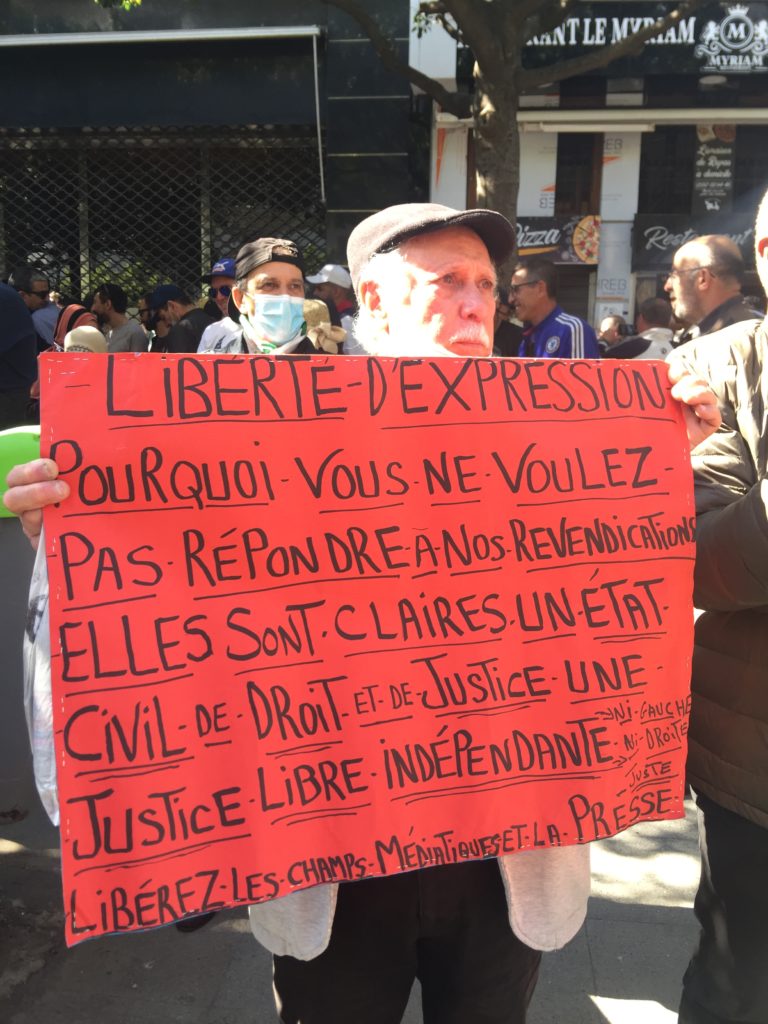 RANT LE MYRIAM
M
MYRIAM
Livraison
de
Repas
à
domicile
Pizza
Restaurant
HREB
- LIBERTÉ - D'EXPRESSION
POURQUOI - VOUS - NE - VOULEZ -
PAS - RÉPONDRE - À - NOS - REVENDICATIONS
ELLES SONT - CLAIRES - UN - ÉTAT -
CIVIL - DE - DROIT - ET - DE - JUSTICE - UNE -
JUSTICE - LIBRE - INDÉPENDANTE - → NI - GAUCHE
→ NI - DROITE
JUSTE
LIBÉREZ - LES - CHAMPS - MÉDIATIQUES ET - LA - PRÉSSE -